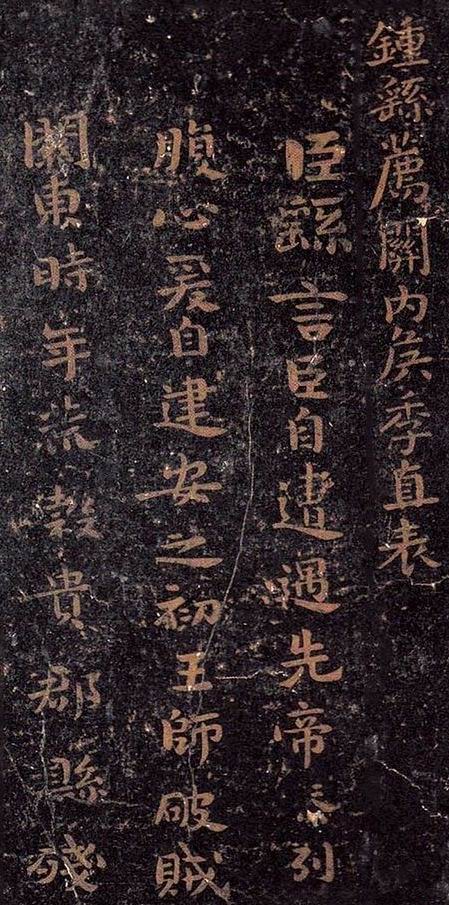 鍾繇薦關内侯季直表
臣繇言臣自遭遇先帝忝列
腹心爰自建安之初王師破賊
關東時年荒穀貴郡縣殘